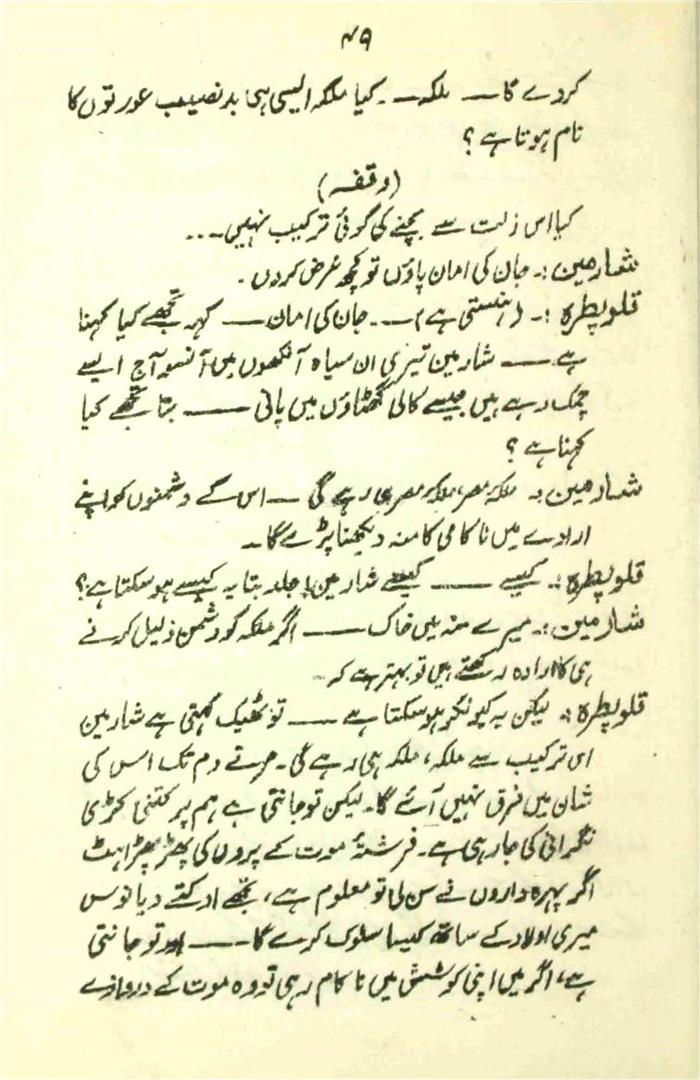 ۴۹
کردے گا —— ملکہ —۔ کیا ملکہ ایسی ہی بدنصیب عورتوں کا
نام ہوتا ہے ؟
(وقفہ)
کیا اس ذلت سے بچنے کی کوئی ترکیب نہیں ...
شارمین :۔ جان کی امان پاؤں تو کچھ عرض کروں ۔
قلوپطرہ :۔ (ہنستی ہے) —۔ جان کی امان —— کہہ تجھے کیا کہنا
ہے —— شارمین تیری ان سیاہ آنکھوں میں آنسو آج ایسے
چمک رہے ہیں جیسے کالی گھٹاؤں میں پانی —— بتا تجھے کیا
کہنا ہے ؟
شارمین :۔ ملکہ مصر، ملکہ مصر ہی رہے گی — اس کے دشمنوں کو اپنے
ارادے میں ناکامی کا منہ دیکھنا پڑے گا ۔
قلوپطرہ :۔ کیسے —— کیسے شارمین! جلد بتا یہ کیسے ہو سکتا ہے ؟
شارمین :۔ میرے منہ میں خاک —— اگر ملکہ کو دشمن ذلیل کرنے
ہی کا ارادہ رکھتے ہیں تو بہتر ہے کہ۔
قلوپطرہ :۔ لیکن یہ کیونکر ہو سکتا ہے —— تو ٹھیک کہتی ہے شارمین
اس ترکیب سے ملکہ، ملکہ ہی رہے گی ۔ مرتے دم تک اس کی
شان میں فرق نہیں آئے گا۔ لیکن تو جانتی ہے ہم پر کتنی کڑی
نگرانی کی جا رہی ہے ۔ فرشتۂ موت کے پروں کی پھڑپھڑاہٹ
اگر پہرہ داروں نے سن لی تو معلوم ہے، تجھے اوکتے ویانوس
میری اولاد کے ساتھ کیسا سلوک کرے گا —— اور تو جانتی
ہے، اگر میں اپنی کوشش میں ناکام رہی تو وہ موت کے دروازے